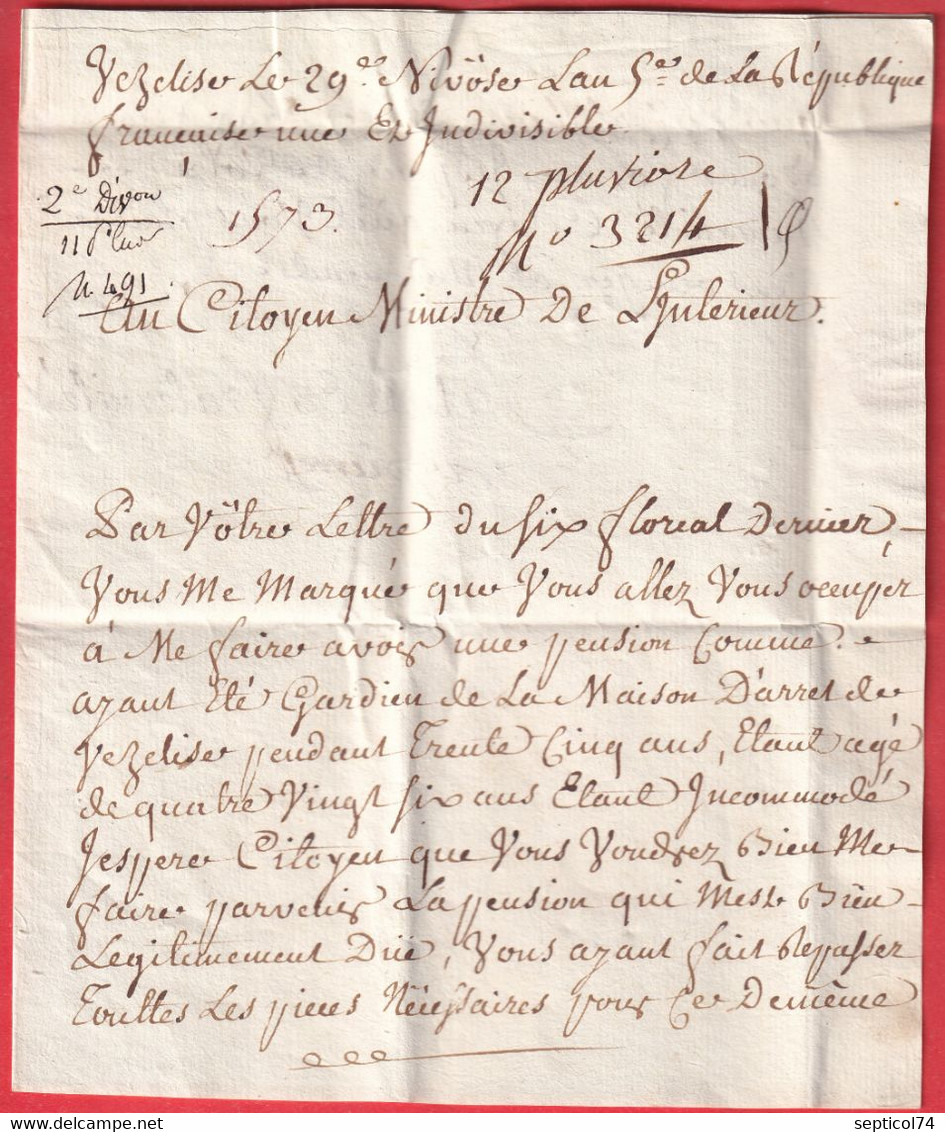 Vezelise Le 29.e Nivôse Lan 5.e de La République
francaise une Et Indivisible
2e Divon
11 Pluv
N. 491
1573.
12 pluviose
No 3214
Au Citoyen Ministre De Linterieur.
Par Vôtre Lettre du six floreal Dernier,
Vous Me Marqué que Vous allez Vous occuper
à Me faire avoir une pension Comme
ayant Eté Gardien de La Maison Darret de
Vezelise pendant Trente Cinq ans, Etant agé
de quatre Vingt six ans Etant Incommodé
Jespere Citoyen que Vous Voudrez Bien Me
faire parvenir La pension qui Mest Bien
Legitimement Düe, Vous ayant fait Repasser
Touttes Les pieces Nécessaires pour Ce Demême
septicol74